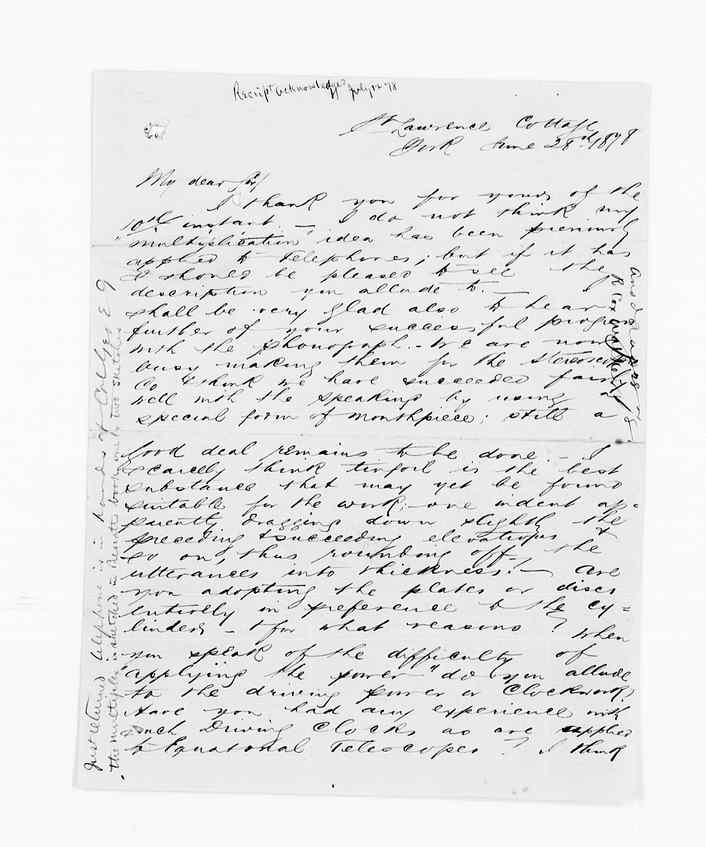 Receipt acknowledged July 12 '78
St Lawrence Cottage
York June 28th 1878
My dear Sir/
I thank you for yours of the
10th instant — I do not think my
"multiplication" idea has been previously
applied to telephones; but if it has
I should be pleased to see the
description you allude to. — I
shall be very glad also to hear
further of your successful progress
with the phonograph. We are now
busy making them for the Stereoscopic
Co & think we have succeeded fairly
well with the speaking by using
special form of mouthpiece; still a
good deal remains to be done. — I
scarcely think tinfoil is the best
substance that may yet be found
suitable for the work; one indent ap-
parently dragging down slightly the
preceding & succeeding elevations &
so on, thus rounding off the
utterances into thickness! — Are
you adopting the plates or discs
entirely in preference to the cy=
linders — & for what reasons? When
you speak of the difficulty of
"applying the power" do you allude
to the driving power or Clockwork?
Have you had any experience with
such Driving Clocks as are applied
to Equatorial Telescopes? I think
Just returned telephone is in hands of
the multiplier is sketched in